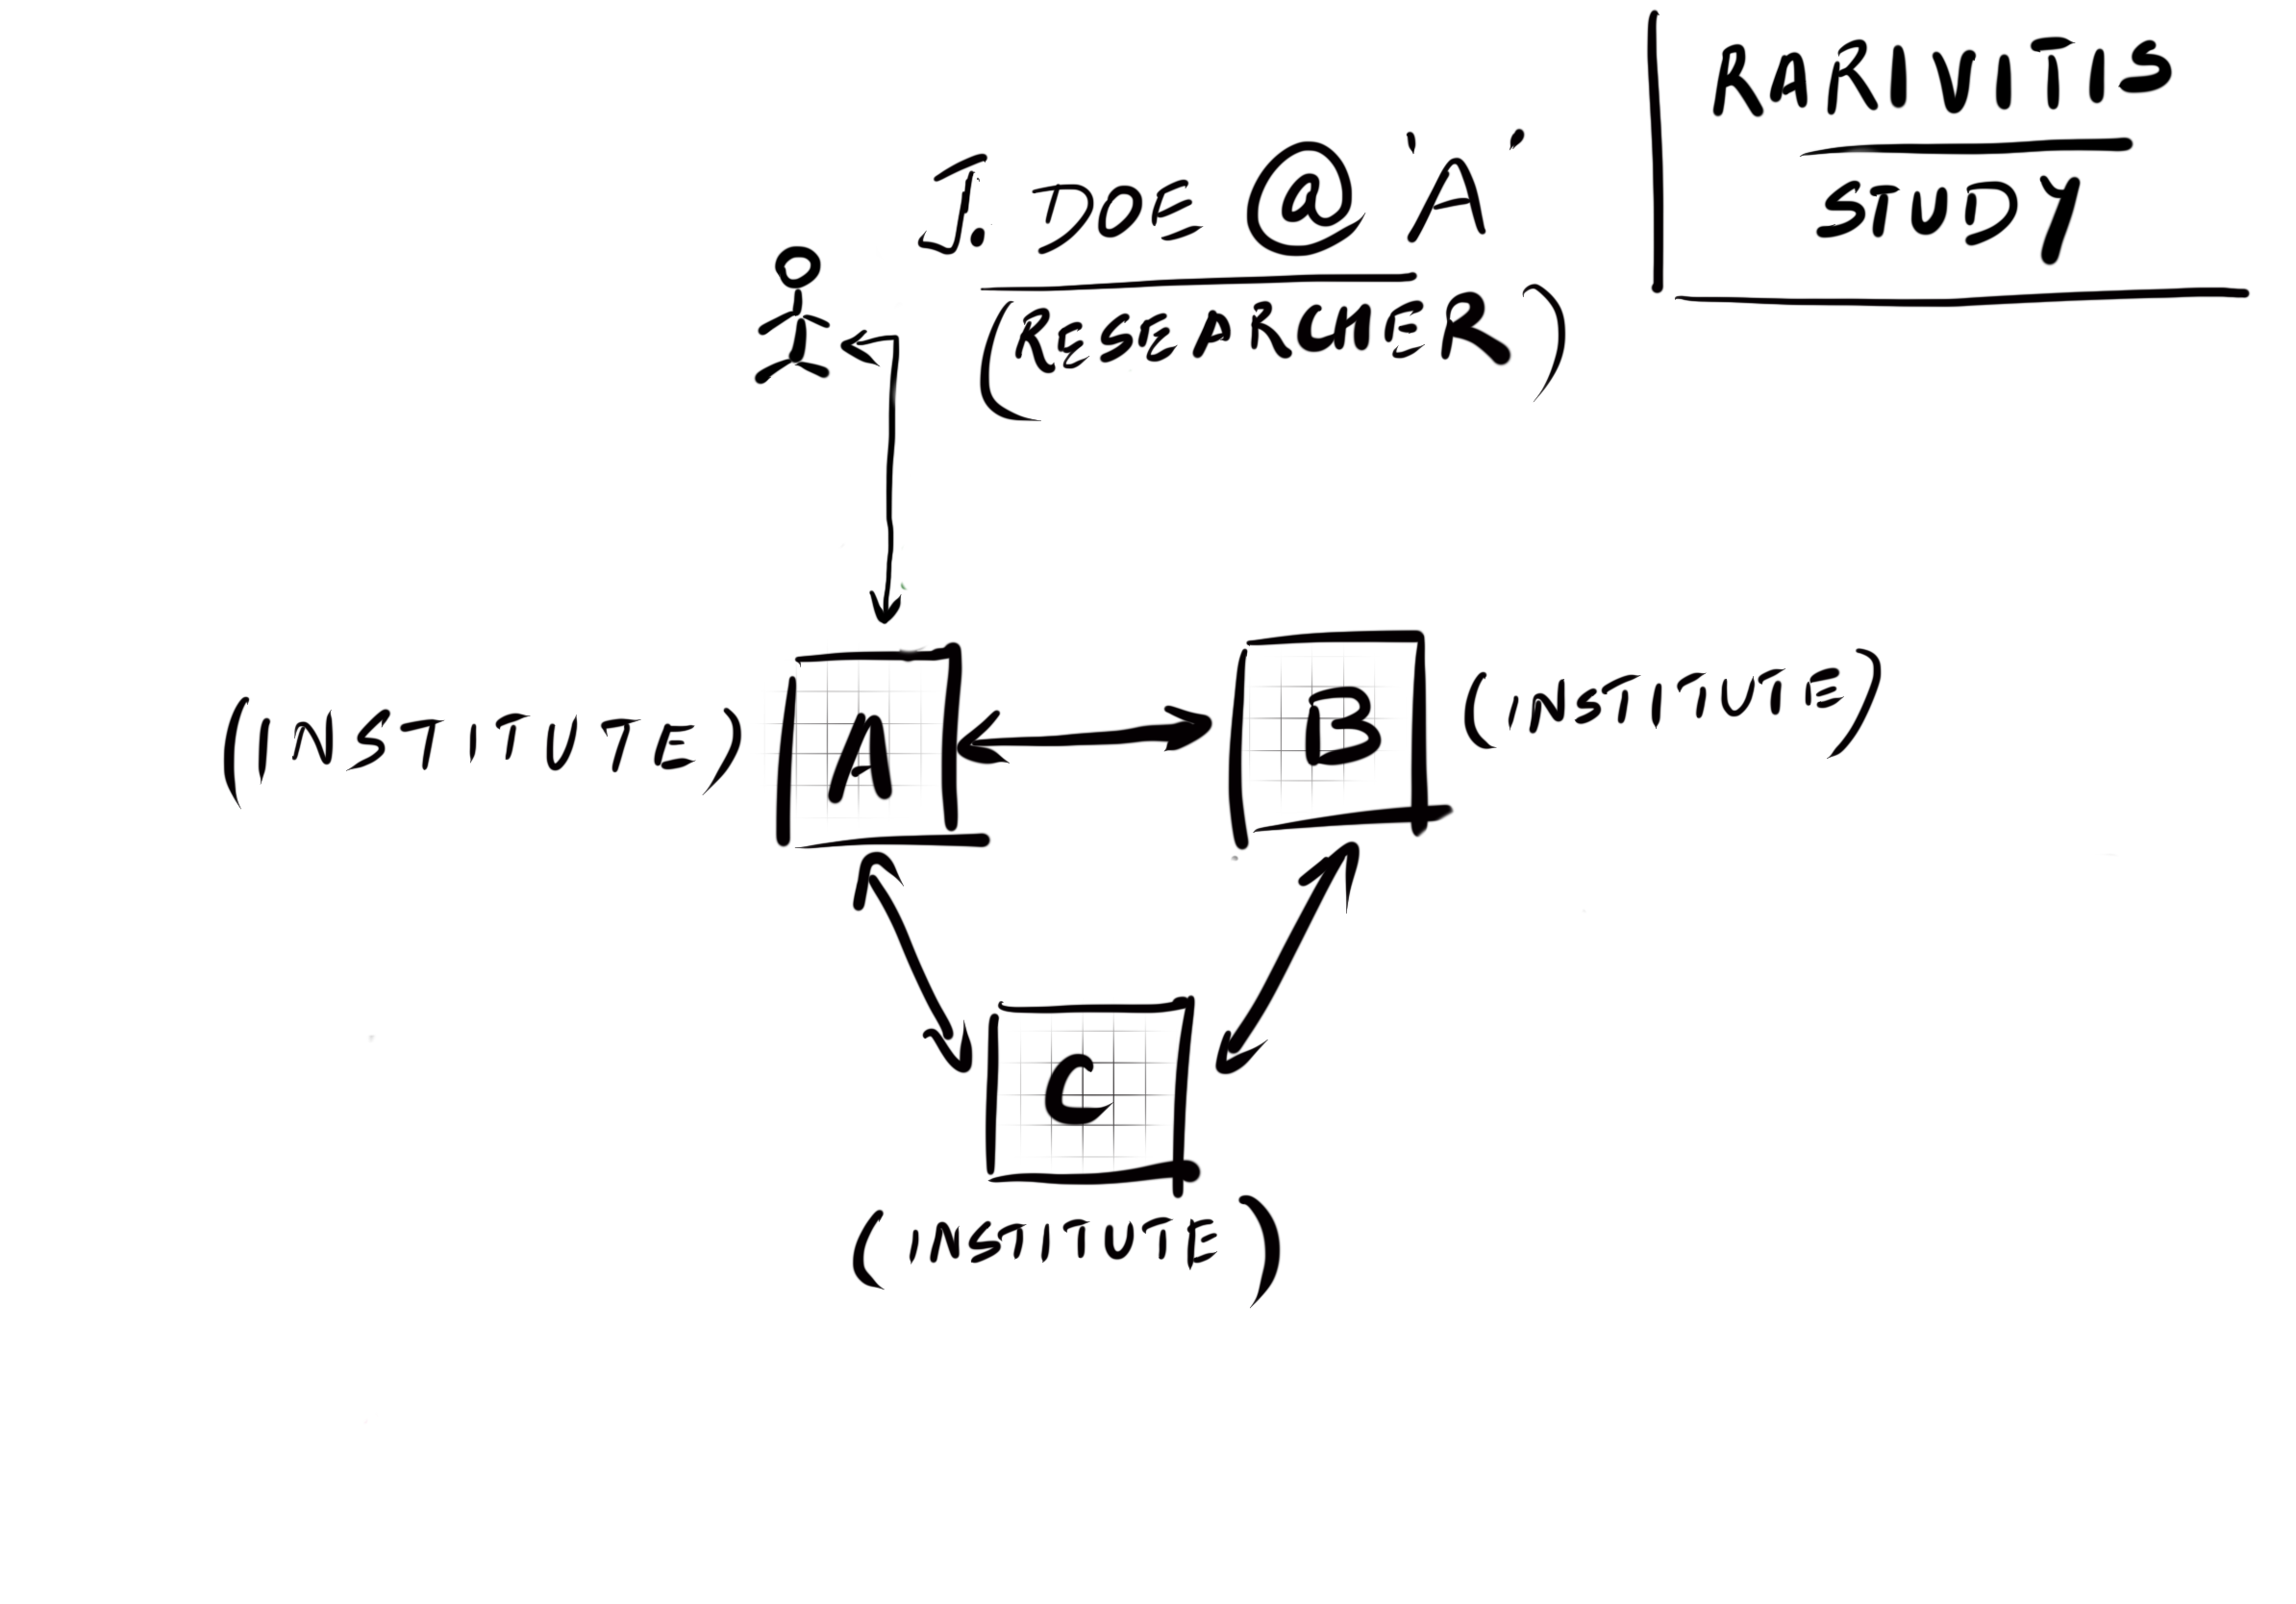 RARIVITIS
STUDY
J. DOE @ 'A'
(RESEARCHER)
(INSTITUTE) A B (INSTITUTE)
C
(INSTITUTE)